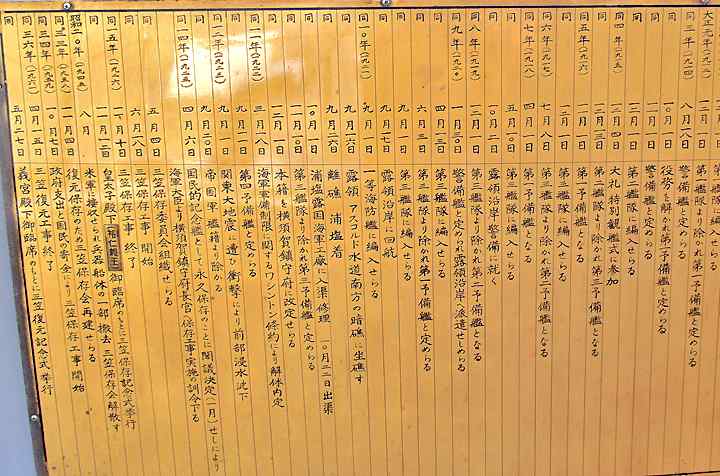 大正元年(一九一二) 一二月一日
同三年(一九一四) 八月一八日 警備艦と定めらる
同 一〇月一日 役務を解かれ第二予備艦と定めらる
同 一一月一日 警備艦と定めらる
同 一二月一日 第二艦隊に編入せらる
同四年(一九一五) 一二月四日 大礼特別観艦式に参加
同 一二月一三日 第二艦隊より除かれ第三予備艦となる
同五年(一九一六) 一二月一日 第二予備艦となる
同 一二月一日 第二艦隊に編入せらる
同六年(一九一七) 七月八日 第二艦隊より除かれ第二予備艦となる
同七年(一九一八) 四月一日 第一予備艦となる
同 五月一〇日 第三艦隊に編入せらる
同 一〇月一日 露領沿岸警備に就く
同八年(一九一九) 一二月一日 第三艦隊より除かれ第二予備艦となる
同九年(一九二〇) 一月一〇日 警備艦と定められ露領沿岸へ派遣せしめらる
同 四月一三日 第三艦隊に編入せらる
同 六月三日 第三艦隊より除かれ第一予備艦と定めらる
同 九月一日 第三艦隊に編入せらる
同 一二月一日 露領沿岸に回航
同一〇年(一九二一) 九月一日 一等海防艦に編入せらる
同 九月一六日 露領アスコルド水道南方の暗礁に坐礁す
同 九月二六日 離礁 浦塩着
同 一〇月一日 浦塩露国海軍工廠に入渠修理 一〇月二二日出渠
第三艦隊より除かれ第三予備艦と定めらる
同 一二月一日 本籍を横須賀鎮守府に改定せらる
同一一年(一九二二) 三月一八日 海軍軍備制限に関するワシントン条約により解体内定
同 九月一日 第四予備艦と定めらる
同一二年(一九二三) 九月一日 関東大地震に遭い衝撃により前部浸水沈下
同 九月二〇日 帝国軍艦籍より除かる
同一四年(一九二五) 四月六日 国民的記念艦として永久保存のことに閣議決定(一月)せしにより
海軍大臣より横須賀鎮守府長官に保存工事実施の訓令下る
同 五月四日 三笠保存委員会組織せらる
同 六月一八日 三笠保存工事開始
同一五年(一九二六) 一一月一〇日 三笠保存工事終了
同 一一月一二日 皇太子殿下裕仁親王御臨席のもと三笠保存記念式挙行
昭和二〇年(一九四五) 八月 米軍に接収とられ兵器船体の一部撤去 三笠保存会解散す
同三三年(一九五八) 一一月四日 復元保存のため三笠保存会再建せらる
同三四年(一九五九) 一〇月七日 政府支出と国民の寄金により三笠保存工事開始
同三六年(一九六一) 四月一五日 三笠復元工事終了
五月二七日 義宮殿下御臨席のもとに三笠復元記念式挙行